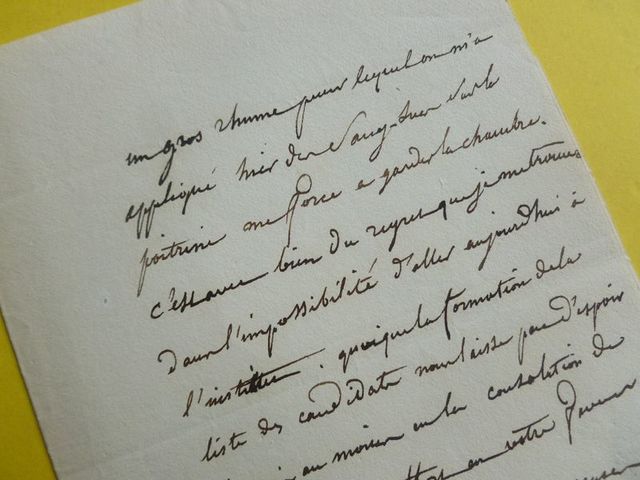 un gros rhume pour lequel on m'a
appliqué hier des sangsues sur la
poitrine me force a garder la chambre.
c'est avec bien du regret que je me trouve
dans l'impossibilité d'aller aujourdhui à
l'institut. quoique la formation de la
liste des candidats nous laisse peu d'espoir
au moins eu la consolation de
en votre faveur